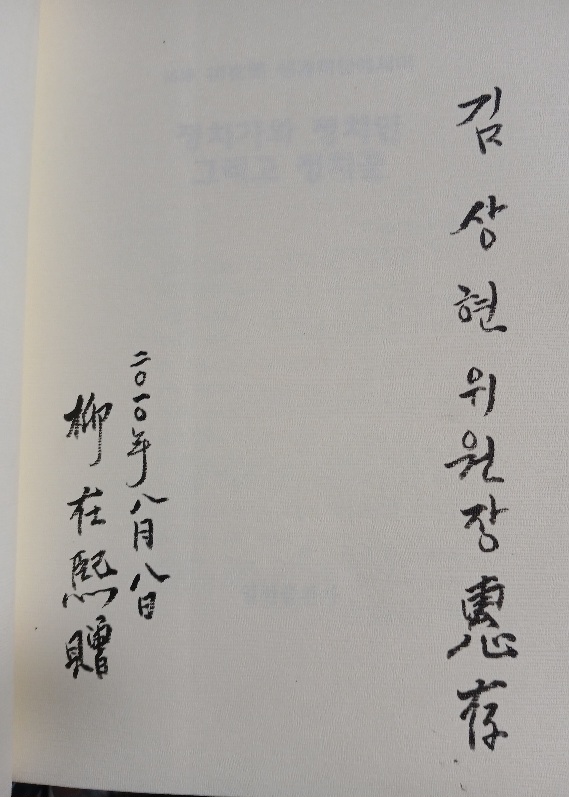 김상현위원장惠存
二○一○年八月八日
柳在熙贈